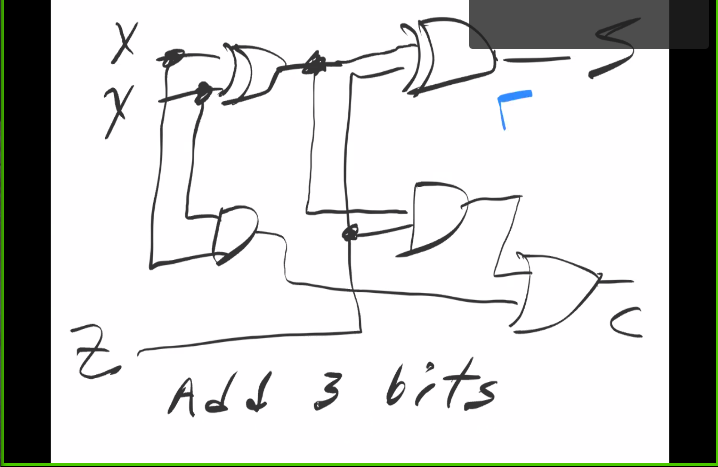 X
Y
S
C
Z
Add 3 bits